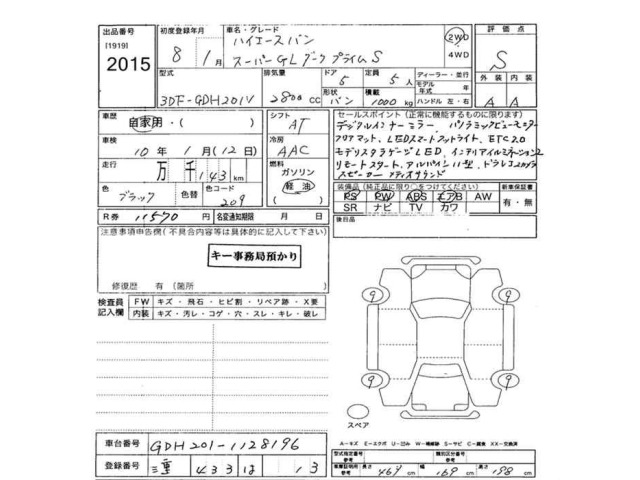 出品番号 初度登録年月 車名・グレード 評価点
[1919] 8年 1月 ハイエースバン 2WD
2015 スーパーGLダークプライムS 4WD S
型式 排気量 ドア 定員 ディーラー・並行 外装 内装
3DF-GDH201V 2800cc 5 5人 モデル年式 年
形状 積載 A A
バン 1000kg ハンドル 左・右
車歴 自家用・( ) シフト AT セールスポイント(正常に機能するものに限ります)
デジタルインナーミラー、パノラミックビューモニター
車検 10年 1月(12日) 冷房 AAC フロアマット、LEDスマートフォトライト、ETC2.0
モデリスタラゲージLED、インテリアイルミネーション2
走行 万 千143km 燃料 ガソリン 軽油 リモートスタート、アルパイン11型、ドラレコ2カメラ
スピーカー オーディオサウンド
色 ブラック 色替 色コード 209 装備品(純正品に限り○をつけてください) 新車保証書
PS PW ABS エアB AW 有・無
SR ナビ TV カワ
R券 11570円 名変通知期限 月 日 後日品
注意事項申告欄(不具合内容等は具体的に記入して下さい)
キー事務局預かり
修復歴 有(箇所 )
検査員記入欄 FW キズ・飛石・ヒビ割・リペア跡・X要
内装 キズ・汚レ・コゲ・穴・スレ・キレ・破レ
9 9
9 9
スペア
A-キズ E-エクボ U-凹み W-補修跡 S-サビ C-腐食 XX-交換済
車台番号 GDH201-1128196 型式指定番号 参考 類別区分番号 参考
登録番号 三重 433 は 13 車庫証明用 参考 長さ 469cm 幅 169cm 高さ 198cm